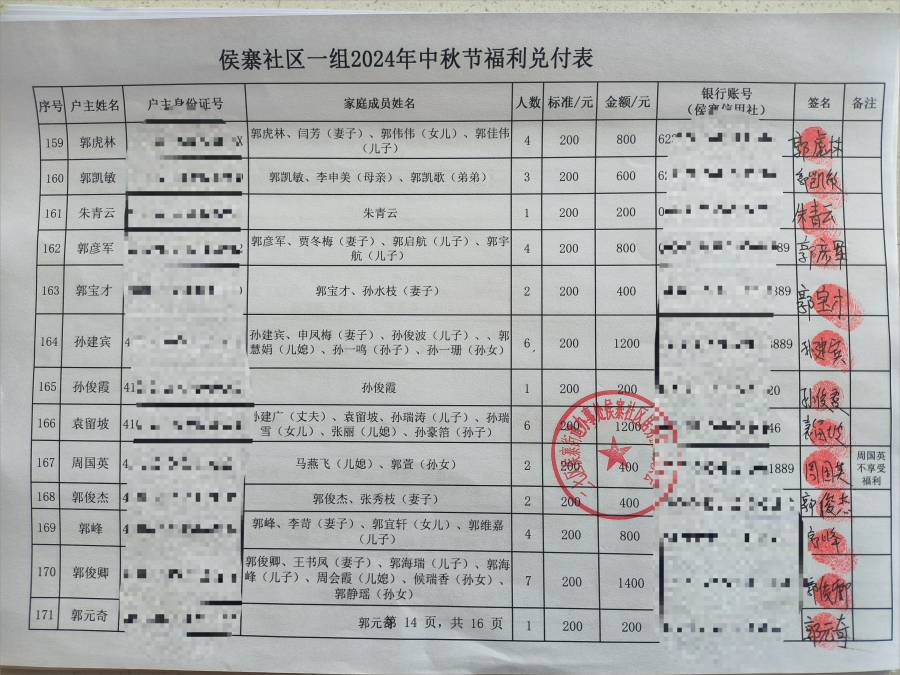 侯寨社区一组2024年中秋节福利兑付表
序号 户主姓名 户主身份证号 家庭成员姓名 人数 标准/元 金额/元 银行账号 签名 备注
（侯寨信用社）
159 郭虎林 郭虎林、闫芳（妻子）、郭伟伟（女儿）、郭佳伟 4 200 800 62 郭虎林
（儿子）
160 郭凯敏 郭凯敏、李申美（母亲）、郭凯歌（弟弟） 3 200 600 62 郭凯敏
161 朱青云 朱青云 1 200 200 朱青云
162 郭彦军 郭彦军、贾冬梅（妻子）、郭启航（儿子）、郭宇 4 200 800 889 郭彦军
航（儿子）
163 郭宝才 郭宝才、孙水枝（妻子） 2 200 400 889 郭宝才
164 孙建宾 4 孙建宾、申凤梅（妻子）、孙俊波（儿子）、、郭 6 200 1200 8889 孙建宾
慧娟（儿媳）、孙一鸣（孙子）、孙一珊（孙女）
165 孙俊霞 41 孙俊霞 1 200 200 20 孙俊霞
166 袁留坡 41 孙建广（丈夫）、袁留坡、孙瑞涛（儿子）、孙瑞 6 200 1200 46 袁留坡
雪（女儿）、张丽（儿媳）、孙豪箔（孙子）
167 周国英 4 马燕飞（儿媳）、郭萱（孙女） 2 200 400 1889 周国英 周国英
不享受
福利
168 郭俊杰 4 郭俊杰、张秀枝（妻子） 2 200 400 郭俊杰
169 郭峰 4 郭峰、李苛（妻子）、郭宜轩（女儿）、郭维嘉 4 200 800 郭峰
（儿子）
170 郭俊卿 郭俊卿、王书凤（妻子）、郭海瑞（儿子）、郭海 7 200 1400 郭俊卿
峰（儿子）、周会霞（儿媳）、候瑞香（孙女）、
郭静瑶（孙女）
171 郭元奇 郭元 1 200 200 郭元奇
第 14 页，共 16 页